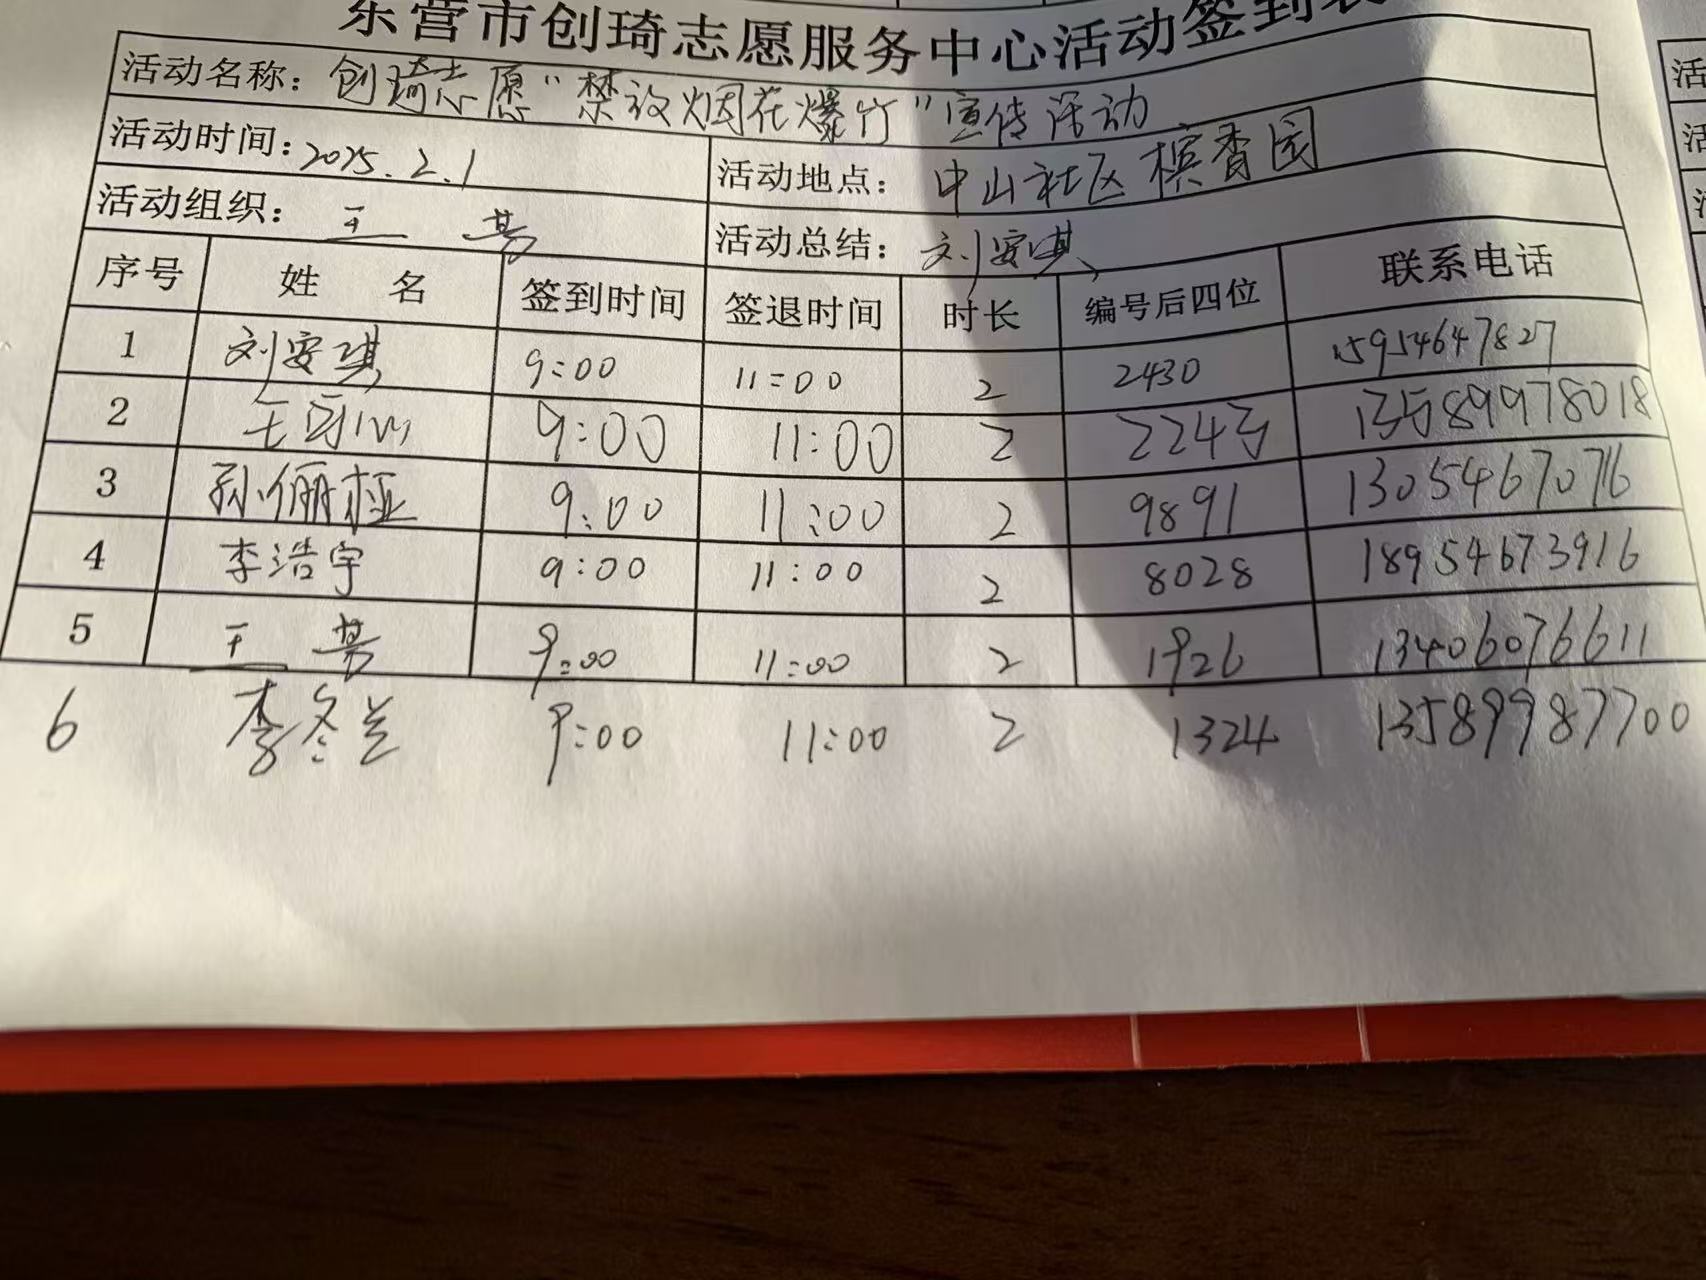 东营市创琦志愿服务中心活动签到表
活动名称：创琦志愿“禁放烟花爆竹”宣传活动
活动时间：2025.2.1 活动地点：中山社区槟香园
活动组织：王芳 活动总结：刘安琪
序号 姓 名 签到时间 签退时间 时长 编号后四位 联系电话
1 刘安琪 9:00 11:00 2 2430 15954647827
2 9:00 11:00 2 2245 13589978018
3 孙俪桠 9:00 11:00 2 9891 13054670716
4 李浩宇 9:00 11:00 2 8028 18954673916
5 王芳 9:00 11:00 2 1926 13406076611
6 李冬兰 9:00 11:00 2 1324 13589987700
活
活